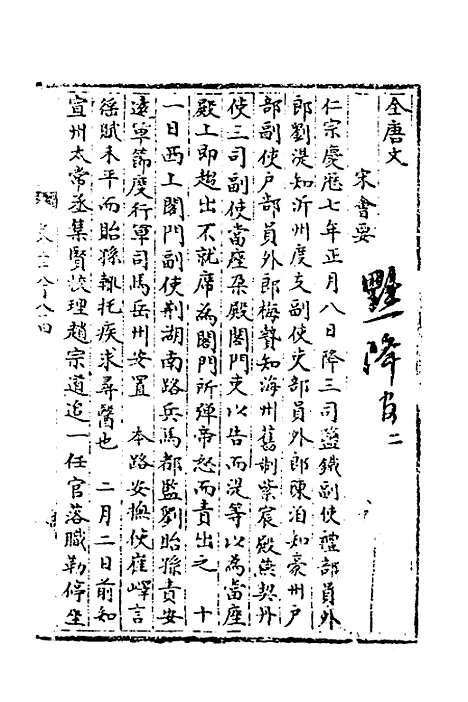 全唐文
宋會要
黜降官二
仁宗慶厯七年正月八日降三司鹽鐵副使禮部員外
郎劉湜知沂州度支副使吏部員外郎陳洎知豪州戶
部副使戶部員外郎梅贄知海州舊制紫宸殿燕契丹
使三司副使當座朶殿閤門吏以告而湜等以為當座
殿上即趨出不就席為閤門所彈帝怒而責出之 十
一日西上閤門副使荆湖南路兵馬都監劉貽孫責安
遠軍節度行軍司馬岳州安置 本路安撫使崔嶧言
徭賊未平而貽孫輒托疾求尋醫也 二月二日前知
宣州太常丞集賢校理趙宗道追一任官落職勒停坐